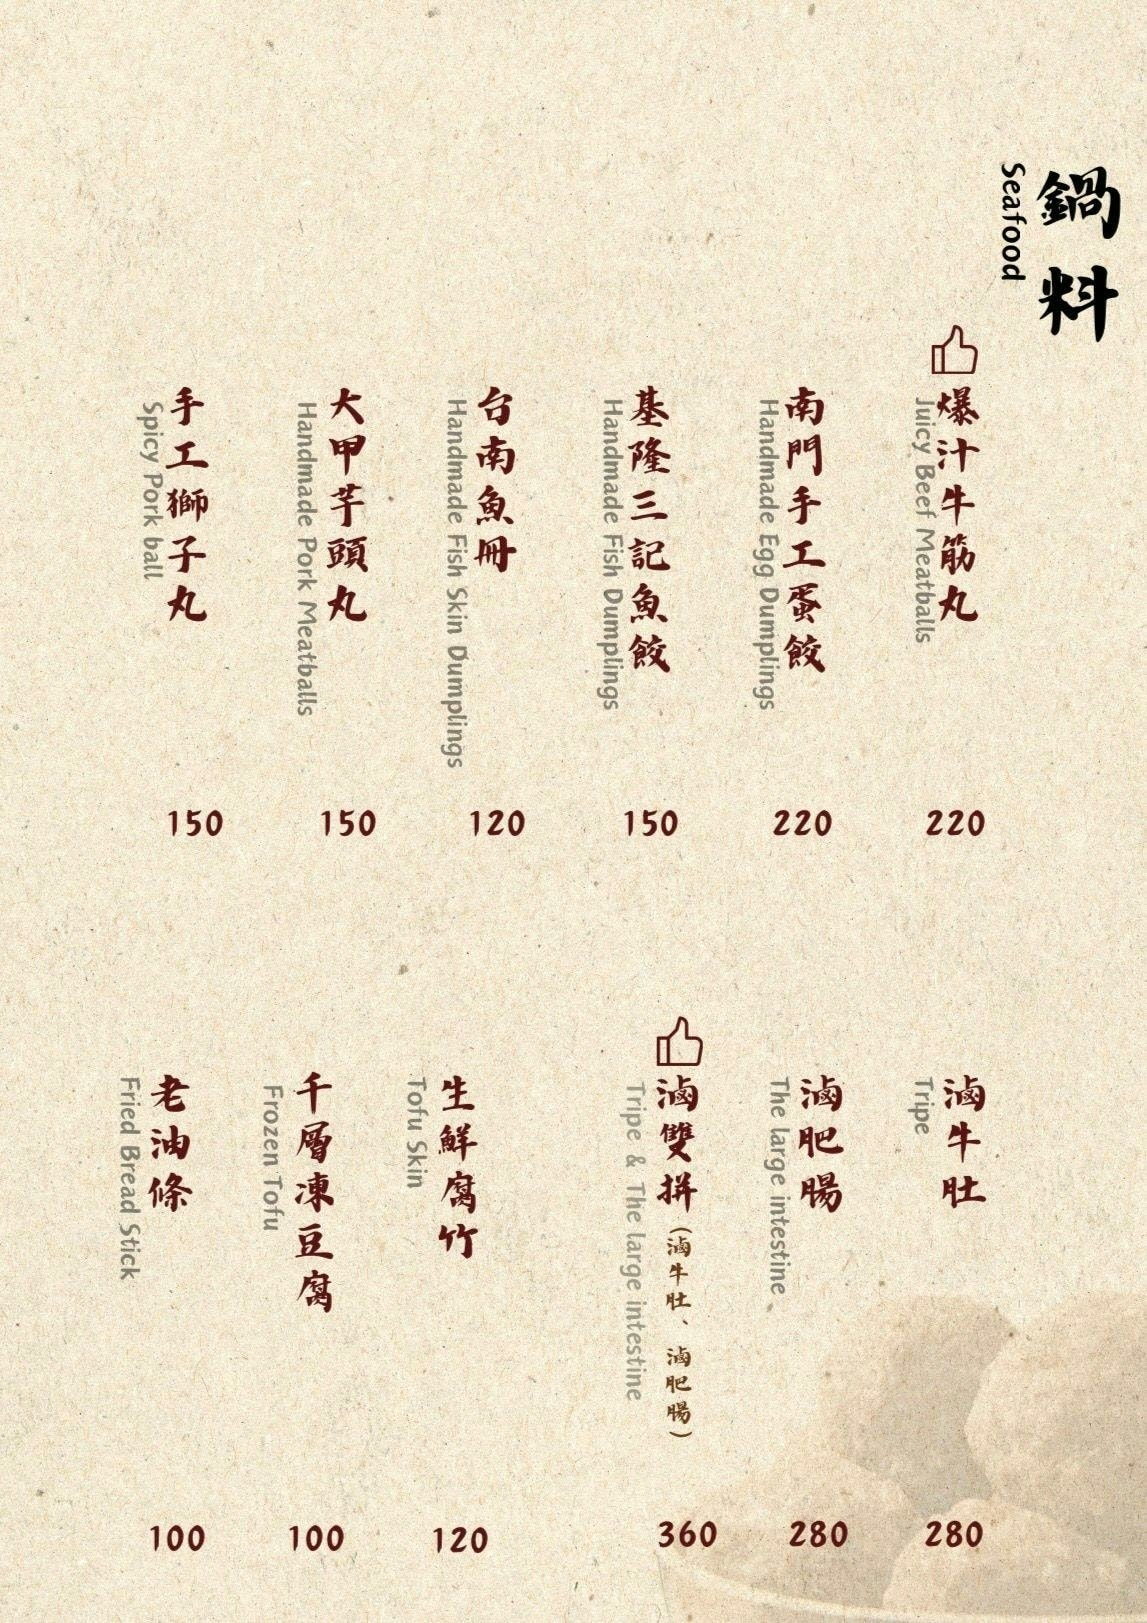 鍋料
Seafood
爆汁牛筋丸
Juicy Beef Meatballs
220
南門手工蛋餃
Handmade Egg Dumplings
220
基隆三記魚餃
Handmade Fish Dumplings
150
台南魚冊
Handmade Fish Skin Dumplings
120
大甲芋頭丸
Handmade Pork Meatballs
150
手工獅子丸
Spicy Pork ball
150
滷牛肚
Tripe
280
滷肥腸
The large intestine
280
滷雙拼(滷牛肚、滷肥腸)
Tripe & The large intestine
360
生鮮腐竹
Tofu Skin
120
千層凍豆腐
Frozen Tofu
100
老油條
Fried Bread Stick
100